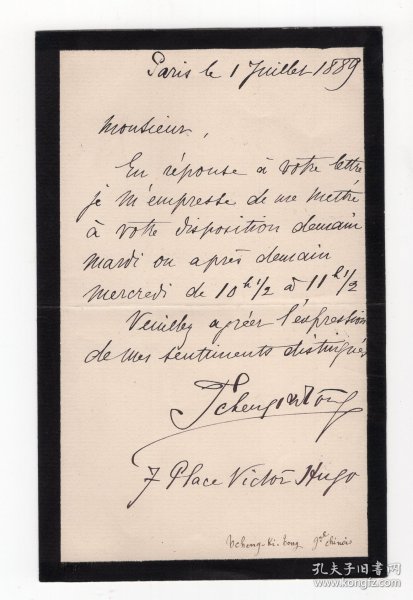 Paris le 1 Juillet 1889
Monsieur,
En réponse à votre lettre
je m'empresse de me mettre
à votre disposition demain
mardi ou après demain
mercredi de 10 h 1/2 à 11 h 1/2
Veuillez agréer l'expression
de mes sentiments distingués
Tcheng Ki Tong
7 Place Victor Hugo
Tcheng-Ki-Tong gal chinois
孔夫子旧书网
www.kongfz.com